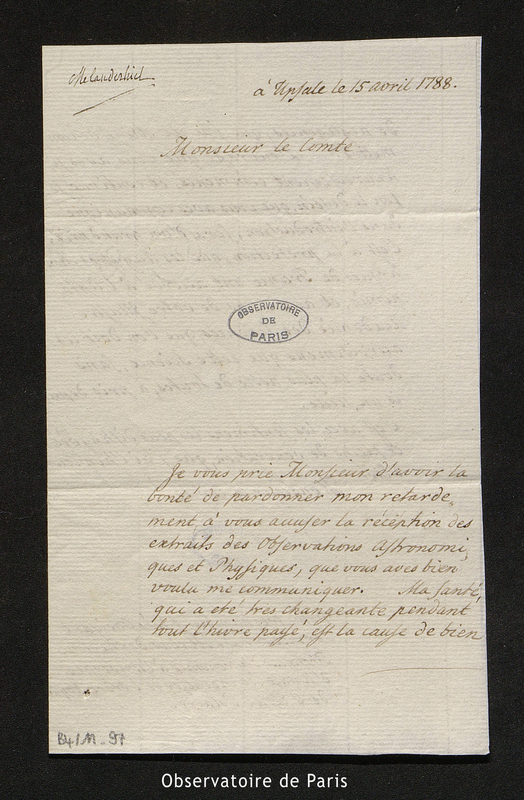 Melanderhielm
à Upsale le 15 avril 1788.
Monsieur le Comte
OBSERVATOIRE
DE
PARIS
Je vous prie Monsieur d'avoir la
bonté de pardonner mon retarde„
ment à vous accuser la réception des
extraits des Observations Astronomi„
ques et Physiques, que vous avés bien
voulu me communiquer. Ma santé,
qui a été tres changeante pendant
tout l'hivre passé, est la cause de bien
B4/11-97
Observatoire de Paris